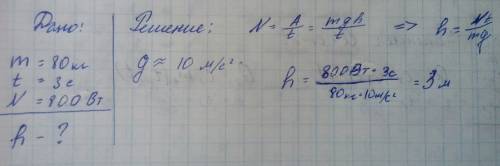 Дано:
m = 80 кг
t = 3 с
N = 800 Вт
h - ?
Решение:
g ≈ 10 м/с²
N = A/t = mgh/t => h = Nt/mg
h = 800 Вт · 3 с / 80 кг · 10 м/с² = 3 м